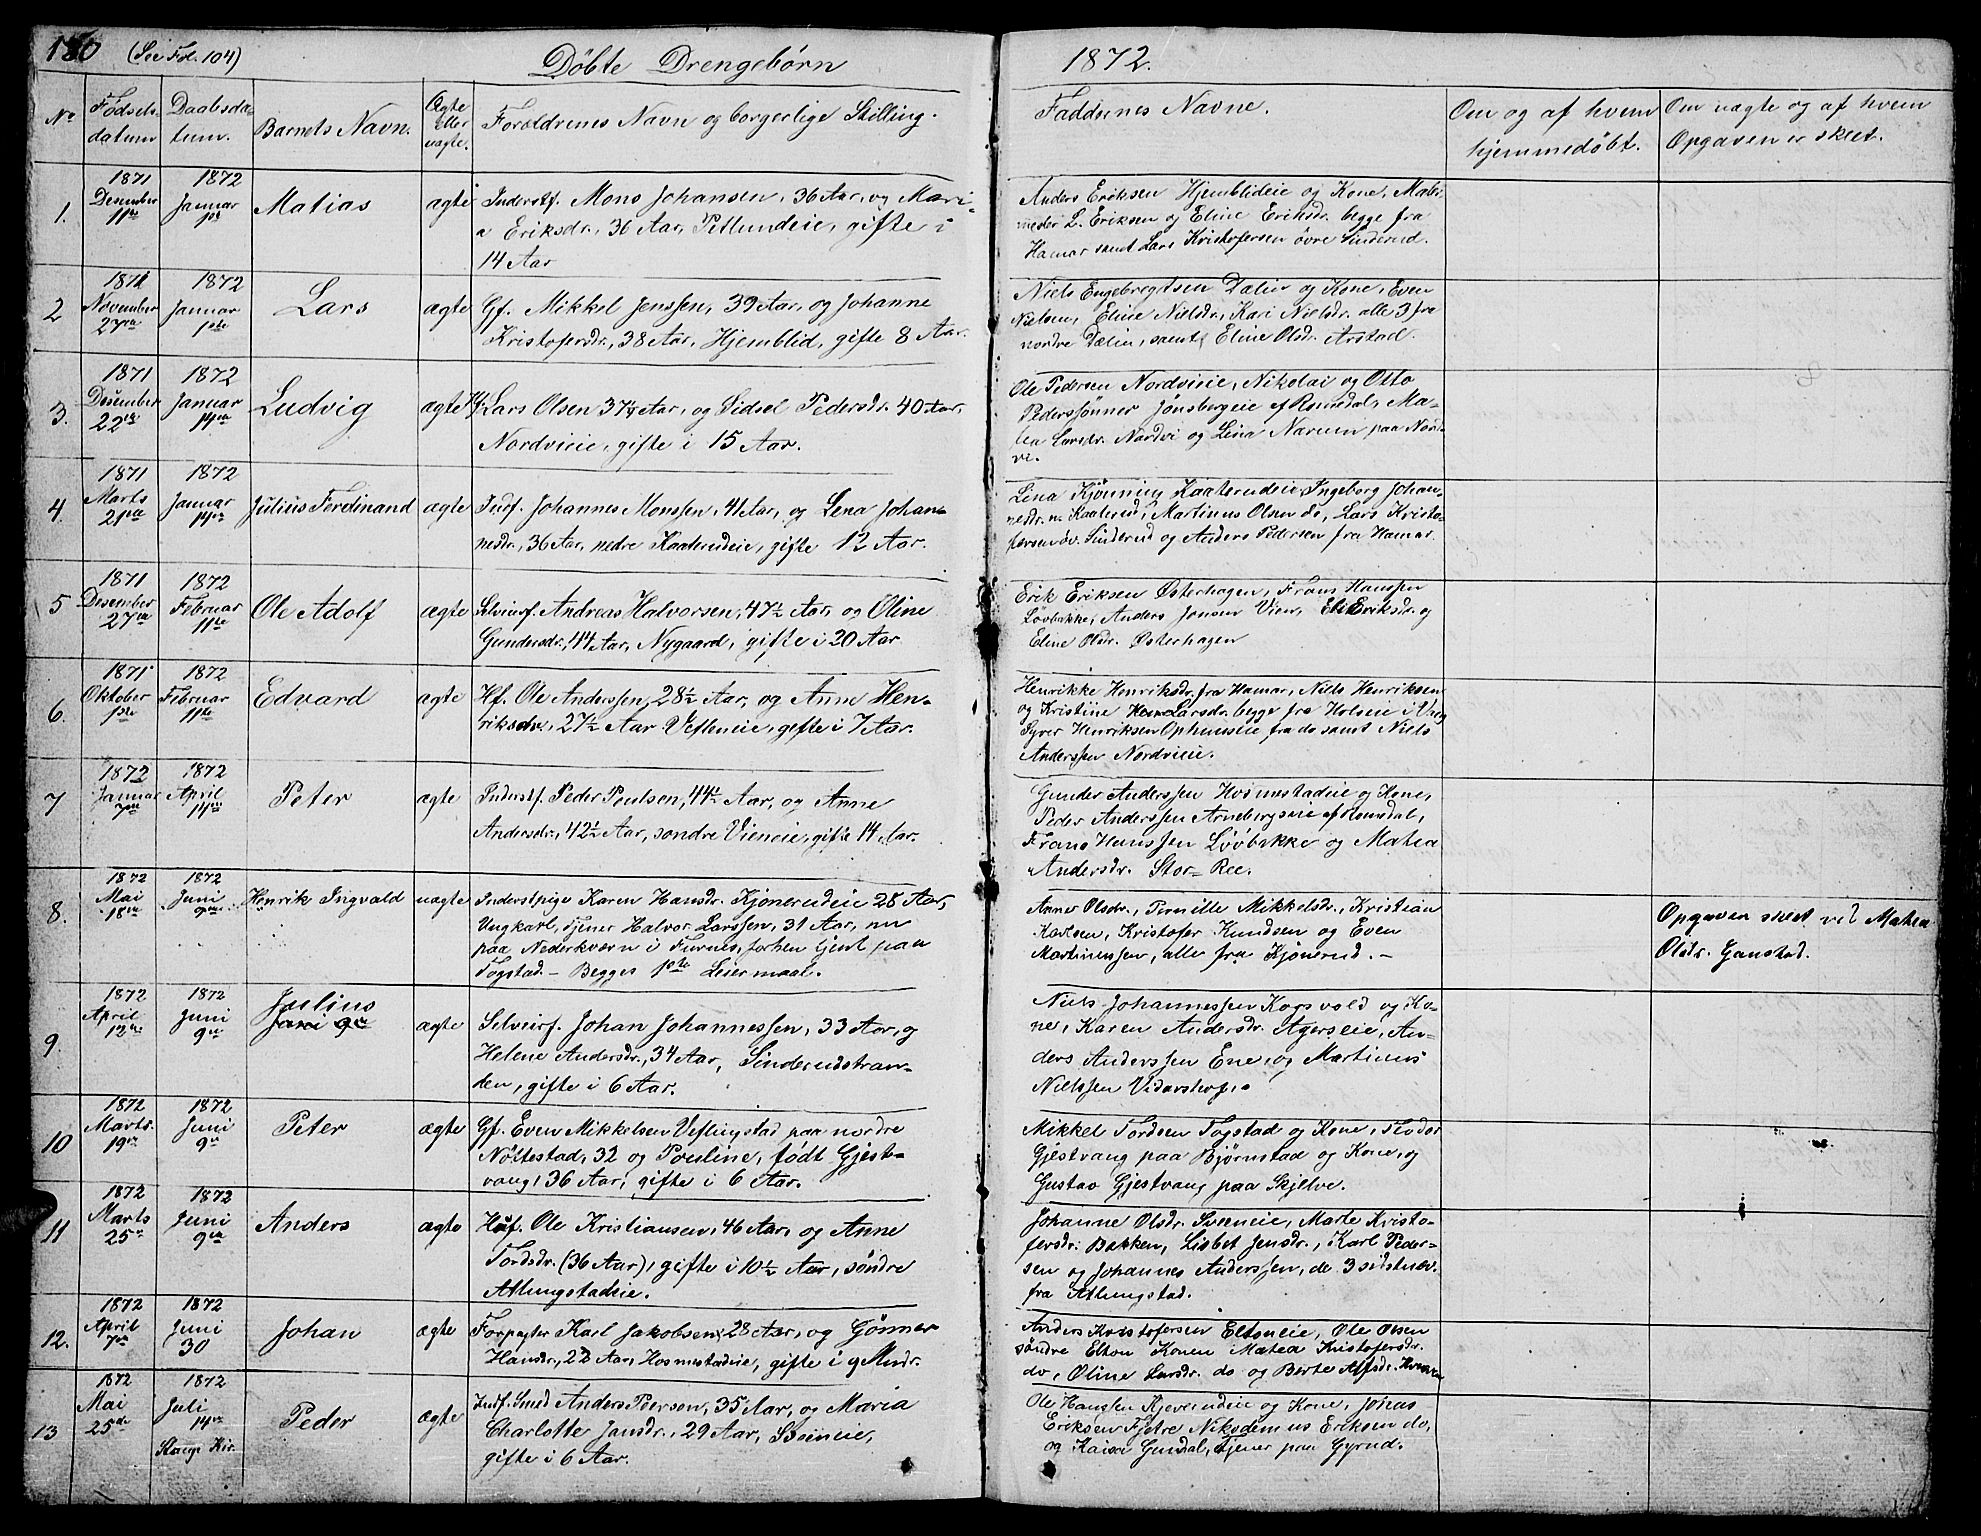 180 (See Fol. 104)
Døbte Drengebørn
1872.
No
Fødsels-
datum
Daabsda-
tum.
Barnets Navn.
Ægte
eller
uægte.
Forældrenes Navn og borgerlige Stilling.
Faddernes Navne.
Om og af hvem
hjemmedøbt.
Om uægte og af hvem
Opgaven er skeet.
1.
1871
Desember
11te
1872
Januar
1ste
Matias
ægte
Inderstf. Mons Johansen, 36 Aar, og Mari-
a Eriksdr., 36 Aar, Petlundeie, gifte i
14 Aar
Anders Eriksen Hjemblideie og Kone, Maler-
mester L. Eriksen og Eline Eriksdr. begge fra
Hamar samt Lars Kristofersen övre Sinderud.
2
1871
November
27de
1872
Januar
1ste
Lars
ægte
Gf. Mikkel Jenssen, 39 Aar, og Johanne
Kristofersdr., 38 Aar, Hjemblid, gifte 8 Aar.
Niels Engebregtsen Dælin og Kone, Even
Nielsen, Eline Nielsdr., Kari Nielsdr. alle 3 fra
nordre Dælin, samt Eline Olsdr. Arstad.
3.
1871
Desember
22de
1872
Januar
14de
Ludvig
ægte
Lars Olsen 37½ Aar, og Sidsel Pedersdr. 40 Aar,
Nordvieie, gifte i 15 Aar.
Ole Pedersen Nordvieie, Nikolai og Otto
Pederssönner Jönsbergeie af Romedal, Ma-
Larsdr. Nordvi og Lina Narum paa Nord-
vi.
4.
1871
Marts
21de
1872
Januar
14de
Julius Ferdinand
ægte
Indf. Johannes Monssen, 41 Aar, og Lena Johan-
nesdr., 36 Aar, nedre Kaaterudeie, gifte 12 Aar.
Lina Kjönnin Kaaterudeie, Ingeborg Johan-
nesdr. n. Kaaterud, Martinus Olsen do, Lars Kristo-
fersen öv. Sinderud og Anders Petersen fra Hamar.
5
1871
Desember
27de
1872
Februar
11te
Ole Adolf
ægte
Selveierf. Andreas Halvorsen, 47½ Aar, og Oline
Gundersdr., 44 Aar, Nygaard, gifte i 20 Aar
Erik Eriksen Østerhagen, Frans Hanssen
Løvbakke, Anders Jonsen Vien, Eli Eriksdr. og
Eline Olsdr. Østerhagen
6.
1871
Oktober
1ste
1872
Februar
11te
Edvard
ægte
Hf. Ole Anderssen, 28½ Aar, og Anne Hen-
riksdr., 27½ Aar Vesleneie, gifte i 7 Aar.
Henrikke Henriksdr. fra Hamar, Niels Henriksen
og Kristine Larsdr. begge fra Holseie i Vang
Syver Henriksen Ophuuseie fra do samt Niels
Anderssen Nordvieie.
7
1872
Januar
7de
1872
April
14de
Peter
ægte
Inderstf. Peder Poulsen, 44½ Aar, og Anne
Andersdr., 42½ Aar, søndre Vieneie, gifte 14 Aar.
Gunder Anderssen Hosmestadeie og Kone,
Peder Anderssen Arnebergseie af Romdal,
Frans Hanssen Løvbakke og Matea
Andersdr. Stor-Ree.
8.
1872
Mai
18de
1872
Juni
9de
Henrik Ingvald
uægte
Inderstpige Karen Hansdr. Kjönerudeie 28 Aar,
Ungkarl, Tjener Halvor Larssen, 31 Aar, nu
paa Nederkvern i Furnes, forhen tjent paa
Togstad. - Begges 1ste Leiermaal.
Anne Olsdr., Pernille Mikkelsdr., Kristian
Karlsen, Kristofer Knudsen og Even
Martinussen, alle fra Kjönerud. -
Opgaven skeet ved Mathea
Olsdr. Gaustad.
9.
1872
April
12te
1872
Juni
9de
Julius
Juni 9de
ægte
Selveierf. Johan Johannessen, 33 Aar, og
Helene Andersdr., 34 Aar, Sinderudstran-
den, gifte i 6 Aar.
Niels Johannessen Kogsvold og Ko-
ne, Karen Andersdr. Agerseie, An-
ders Anderssen Ene, og Martinus
Nielssen Vidarshof.
10
1872
Marts.
19de
1872
Juni
9de
Peter
ægte
Gf. Even Mikkelsen Veflingstad paa nordre
Nöttestad, 32 og Pouline, født Gjest-
vang, 36 Aar, gifte i 6 Aar.
Mikkel Tordsen Togstad og Kone, Teodor
Gjestvang paa Bjørnstad og Kone, og
Gustav Gjestvang paa Skjelve.
11
1872
Marts
25de
1872
Juni
9de
Anders
ægte
Huf. Ole Kristiansen, 46 Aar, og Anne
Tordsdr. (36 Aar), gifte i 10½ Aar, söndre
Atlungstadeie.
Johanne Olsdr. Sveeneie, Marte Kristo-
fersdr. Bakken, Lisbet Jensdr., Karl Peder-
sen og Johannes Anderssen, de 3 sidstnæv.
fra Atlungstad.
12.
1872
April
7de
1872
Juni
30
Johan
ægte
Forpagter Karl Jakobsen, 28 Aar, og Gönner
Hansdr., 22 Aar, Hosmestadeie, gifte i 9 Mndr.
Anders Kristofersen Eltoneie, Ole Olsen
søndre Elton Konen Matea Kristofersdr.
do, Oline Larsdr. do og Berte Alfsdr.
13
1872
Mai
25de
1872
Juli
14de
Stange Kir.
Peder
ægte
Indf. Smed Anders Peersen, 35 Aar, og Maria
Charlotte Jansdr., 29 Aar, Sveneie,
gifte i 6 Aar.
Ole Hanssen Kjeverudeie og Kone, Johas
Eriksen Fjetre, Nikodemus Eriksen do,
og Kaisa Gundal, tjener paa Gyrud.